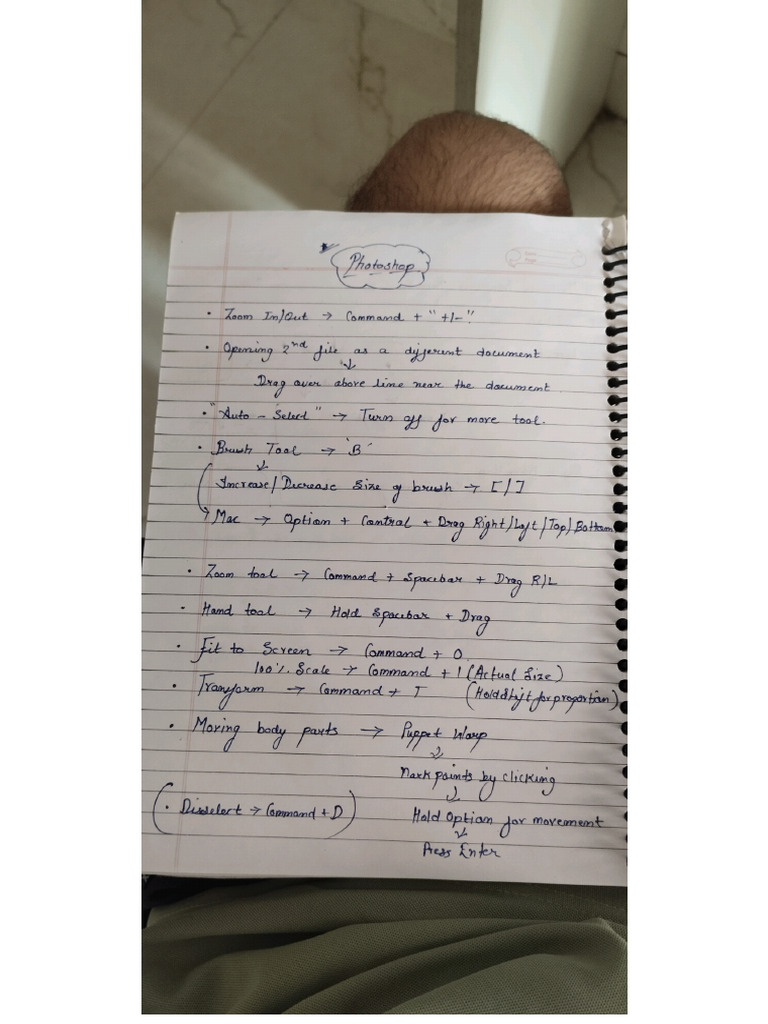 Photoshop
• Zoom In/Out → Command + "+/-"
• Opening 2nd file as a different document
↓
Drag over above line near the document
• "Auto - Select" → Turn off for move tool.
• Brush Tool → 'B'
↓
Increase/Decrease Size of brush → [/]
→ Mac → Option + Control + Drag Right/Left/Top/Bottom
• Zoom tool → Command + Spacebar + Drag R/L
• Hand tool → Hold Spacebar + Drag
• Fit to Screen → Command + 0
100% Scale → Command + 1 (Actual Size)
• Transform → Command + T (Hold Shift for proportion)
• Moving body parts → Puppet Warp
↓
Mark points by clicking
↓
(• Disselect → Command + D) Hold Option for movement
↓
Press Enter